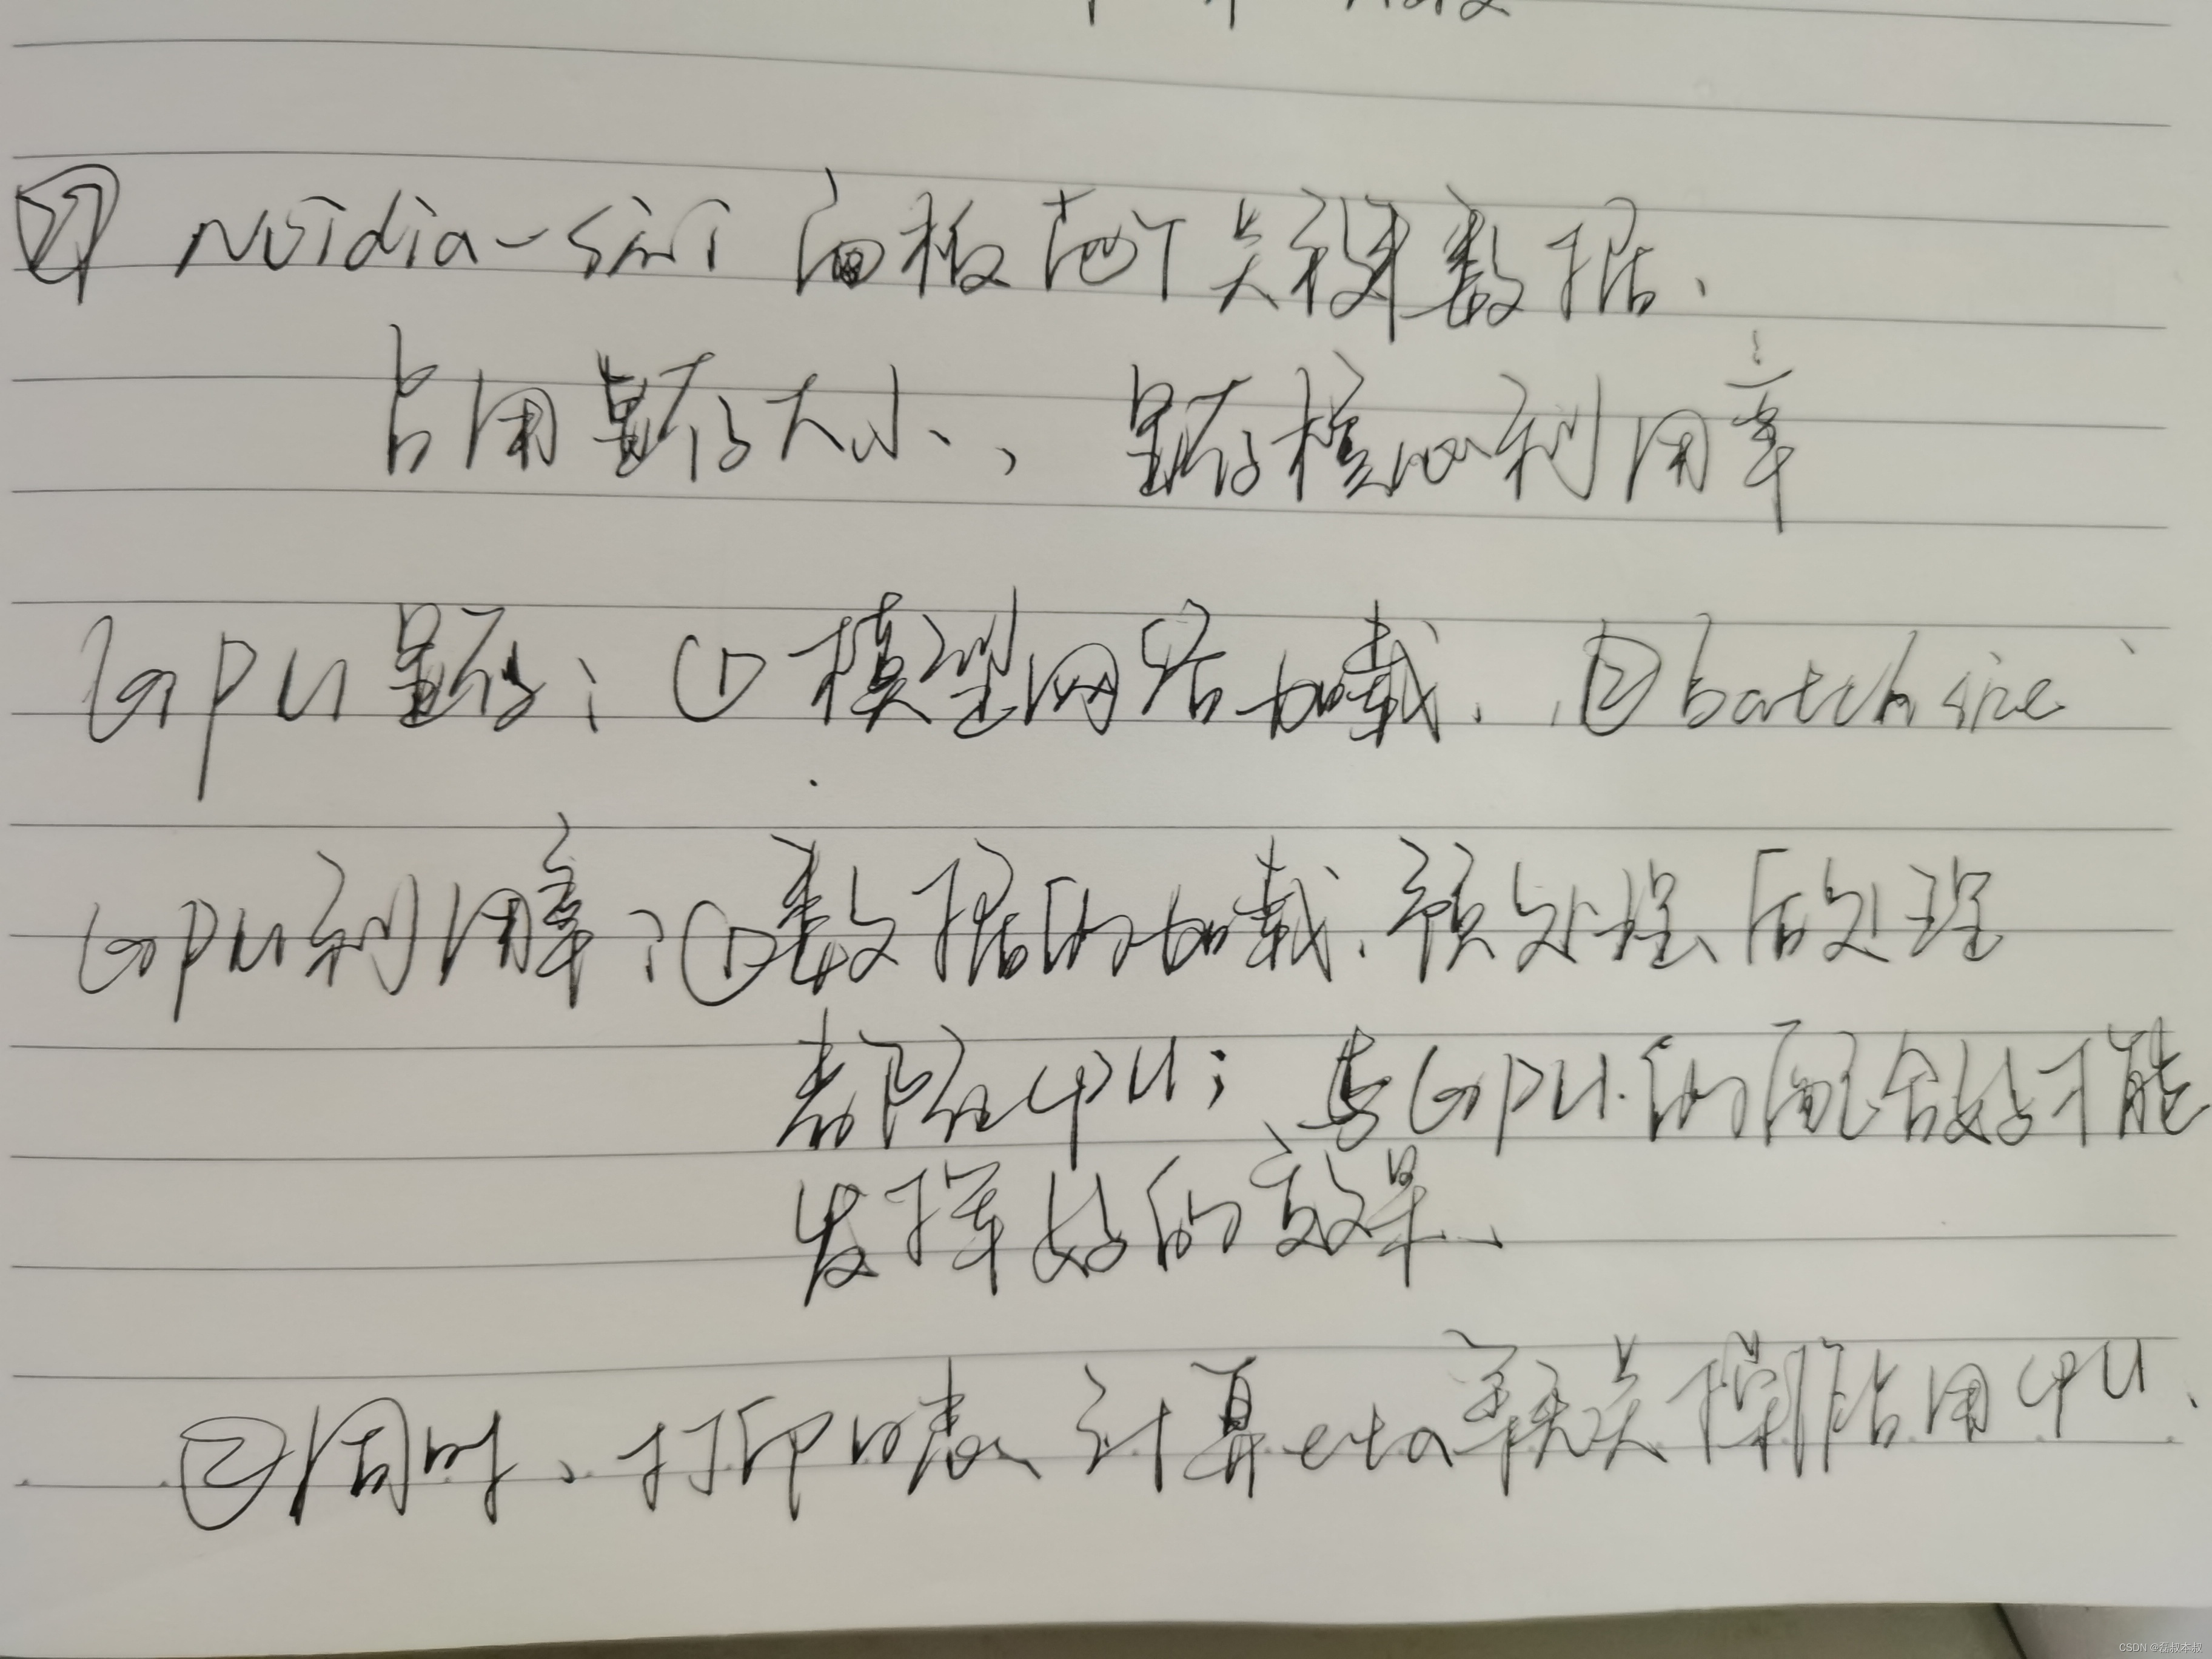 ④ Nvidia-smi 面板两个关键数据、
占用显存大小、, 显存核心利用率
GPU显存: ①模型网络加载. ②batch size
GPU利用率: ①数据的加载、预处理、后处理
都在CPU; 与GPU的配合好才能
发挥好的效果、
②同时、打印log表 计算eta 占用CPU、
CSDN @磊叔本叔